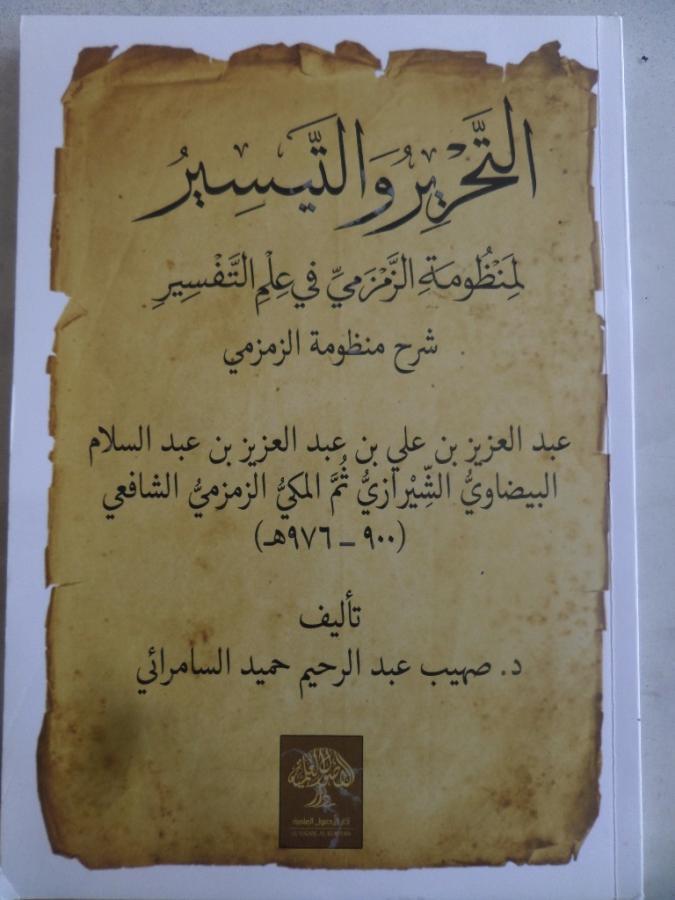 التَّحْرِيْرُ وَالتَّيْسِيرُ
لِمَنْظُومَةِ الزَّمْزَمِيِّ فِي عِلْمِ التَّفْسِيرِ
شرح منظومة الزمزمي
عبد العزيز بن علي بن عبد العزيز بن عبد السلام
البيضاويُّ الشِّيْرازيُّ ثُمَّ المكيُّ الزمزميُّ الشافعي
(٩٠٠ – ٩٧٦هـ)
تأليف
د. صهيب عبد الرحيم حميد السامرائي